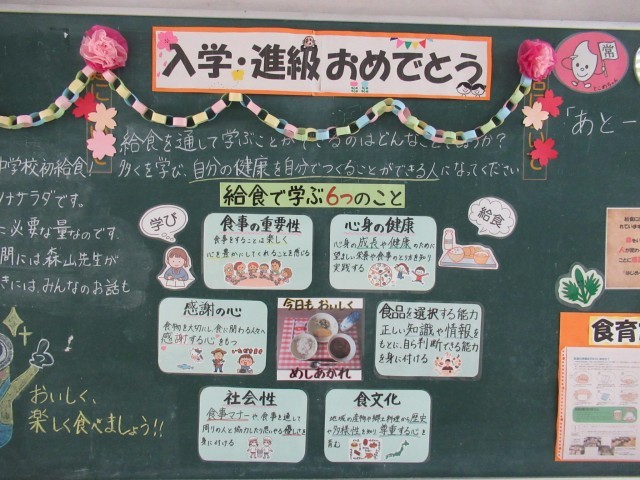 入学・進級おめでとう
常
「あと一
給食を通して学ぶことが
のはどんなこ
多くを学び、自分の健康を自分でつくることができる人になってください
中学校初給食
サラダです。
に必要な量なのです
間には森山先生が
きには、みんなのお話も
給食で学ぶ6つのこと
学び
給食
食事の重要性
食事をすることは楽しく
心を豊かにしてくれることを感じる
心身の健康
心身の成長や健康のために
望ましい栄養や食事のとり方を知り
実践する
感謝の心
食物を大切にし、食に関わる人々へ
感謝する心をもつ
今日も おいしく
めしあがれ
食品を選択する能力
正しい知識や情報を
もとに、自ら判断できる能力
を身に付ける
社会性
食事マナーや、食事を通して
周りの人と協力したり思いやる優しさを
身に付ける
食文化
地域の産物や郷土料理から歴史
や多様性を知り尊重する心を
育む
おいしく、
楽しく食べましょう!!
食育